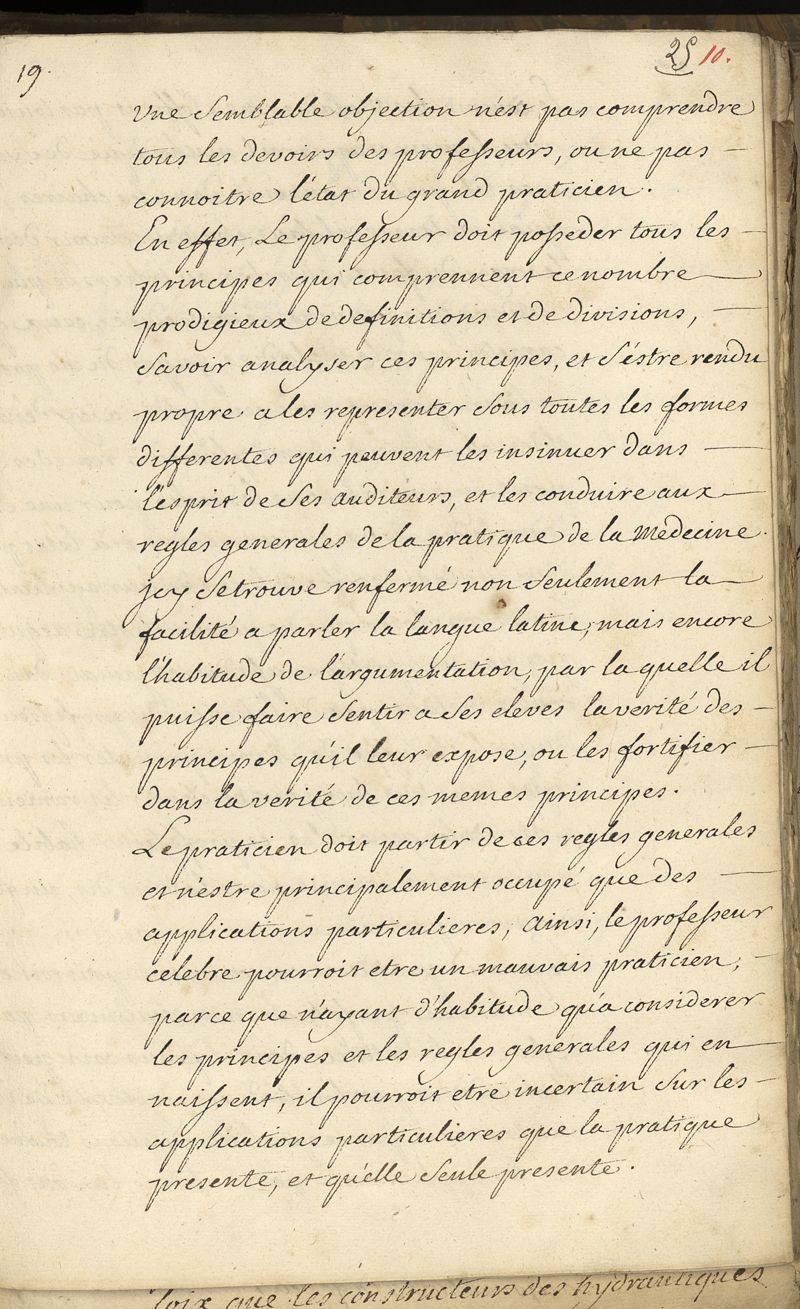 19.
25 10.
Une semblable objection n'est pas comprendre
tous les devoirs des professeurs, ou ne pas —
connoitre l'état du grand praticien.
En effet, Le professeur doit posseder tous les —
principes qui comprennent ce nombre —
prodigieux de definitions et de divisions, —
savoir analyser ces principes, et s'éstre rendu
propre a les representer sous toutes les formes
differentes qui peuvent les insinuer dans —
l'esprit de ses auditeurs, et les conduire aux —
regles generales de la pratique de la Medecine.
jcy se trouve renfermé non seulement la —
facilité a parler la langue latine, mais encore
l'habitude de l'argumentation, par la quelle il
puisse faire sentir a ses eleves la verité des —
principes qu'il leur expose, ou les fortifier —
dans la verité de ces memes principes.
Le praticien doit partir de ces regles generales
et n'estre principalement occupé que des —
applications particulieres, ainsi, le professeur
celebre pourroit etre un mauvais praticien, —
parce que n'ayant d'habitude qu'a considerer
les principes et les regles generales qui en —
naissent, il pourroit etre incertain sur les —
applications particulieres que la pratique
presente, et qu'elle seule presente.
que les constructeurs des hydrauliques